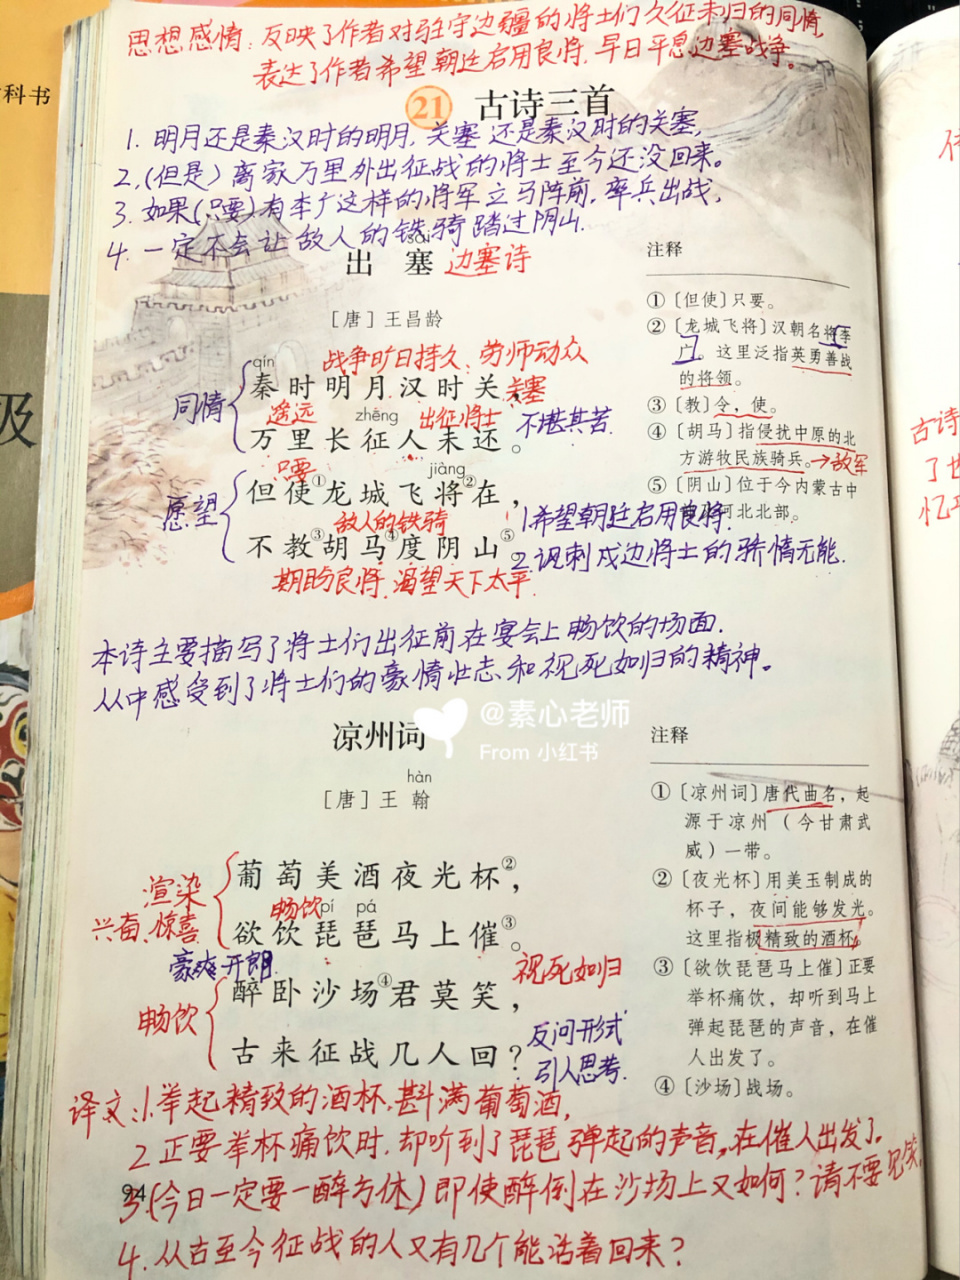 科书
级
思想感情：反映了作者对驻守边疆的将士们久征未归的同情，
表达了作者希望朝廷启用良将，早日平息边塞战争。
21 古诗三首
1. 明月还是秦汉时的明月，关塞还是秦汉时的关塞，
2.（但是）离家万里外出征战的将士至今还没回来。
3. 如果（只要）有李广这样的将军立马阵前，率兵出战，
4. 一定不会让敌人的铁骑踏过阴山.
sài
出塞 边塞诗
［唐］王昌龄
战争旷日持久，劳师动众
qín
秦时明月汉时关， 关塞
同情
遥远 zhēng 出征将士
万里长征人未还。 不堪其苦.
只要 jiàng
但使①龙城飞将②在，
愿望
敌人的铁骑
1.希望朝廷启用良将.
不教③胡马④度阴山⑤。
2.讽刺戍边将士的骄情无能.
期盼良将，渴望天下太平
注释
①〔但使〕只要。
②〔龙城飞将〕汉朝名将李
广。这里泛指英勇善战
的将领。
③〔教〕令，使。
④〔胡马〕指侵扰中原的北
方游牧民族骑兵。→敌军
⑤〔阴山〕位于今内蒙古中
河北北部。
本诗主要描写了将士们出征前在宴会上畅饮的场面.
从中感受到了将士们的豪情壮志和视死如归的精神。
@素心老师
From 小红书
凉州词
hàn
［唐］王翰
葡萄美酒夜光杯②，
渲染
兴奋、惊喜
畅饮 pí pá
欲饮琵琶马上催③。
豪爽开朗
视死如归
醉卧沙场④君莫笑，
畅饮
古来征战几人回？
反问形式
引人思考.
注释
①〔凉州词〕唐代曲名，起
源于凉州（今甘肃武
威）一带。
②〔夜光杯〕用美玉制成的
杯子，夜间能够发光。
这里指极精致的酒杯。
③〔欲饮琵琶马上催〕正要
举杯痛饮，却听到马上
弹起琵琶的声音，在催
人出发了。
④〔沙场〕战场。
译文：1.举起精致的酒杯，斟满葡萄酒，
2 正要举杯痛饮时，却听到了琵琶弹起的声音，在催人出发了。
94
3.（今日一定要一醉方休）即使醉倒在沙场上又如何？请不要见笑，
4. 从古至今征战的人又有几个能活着回来？
古诗
了世
忆